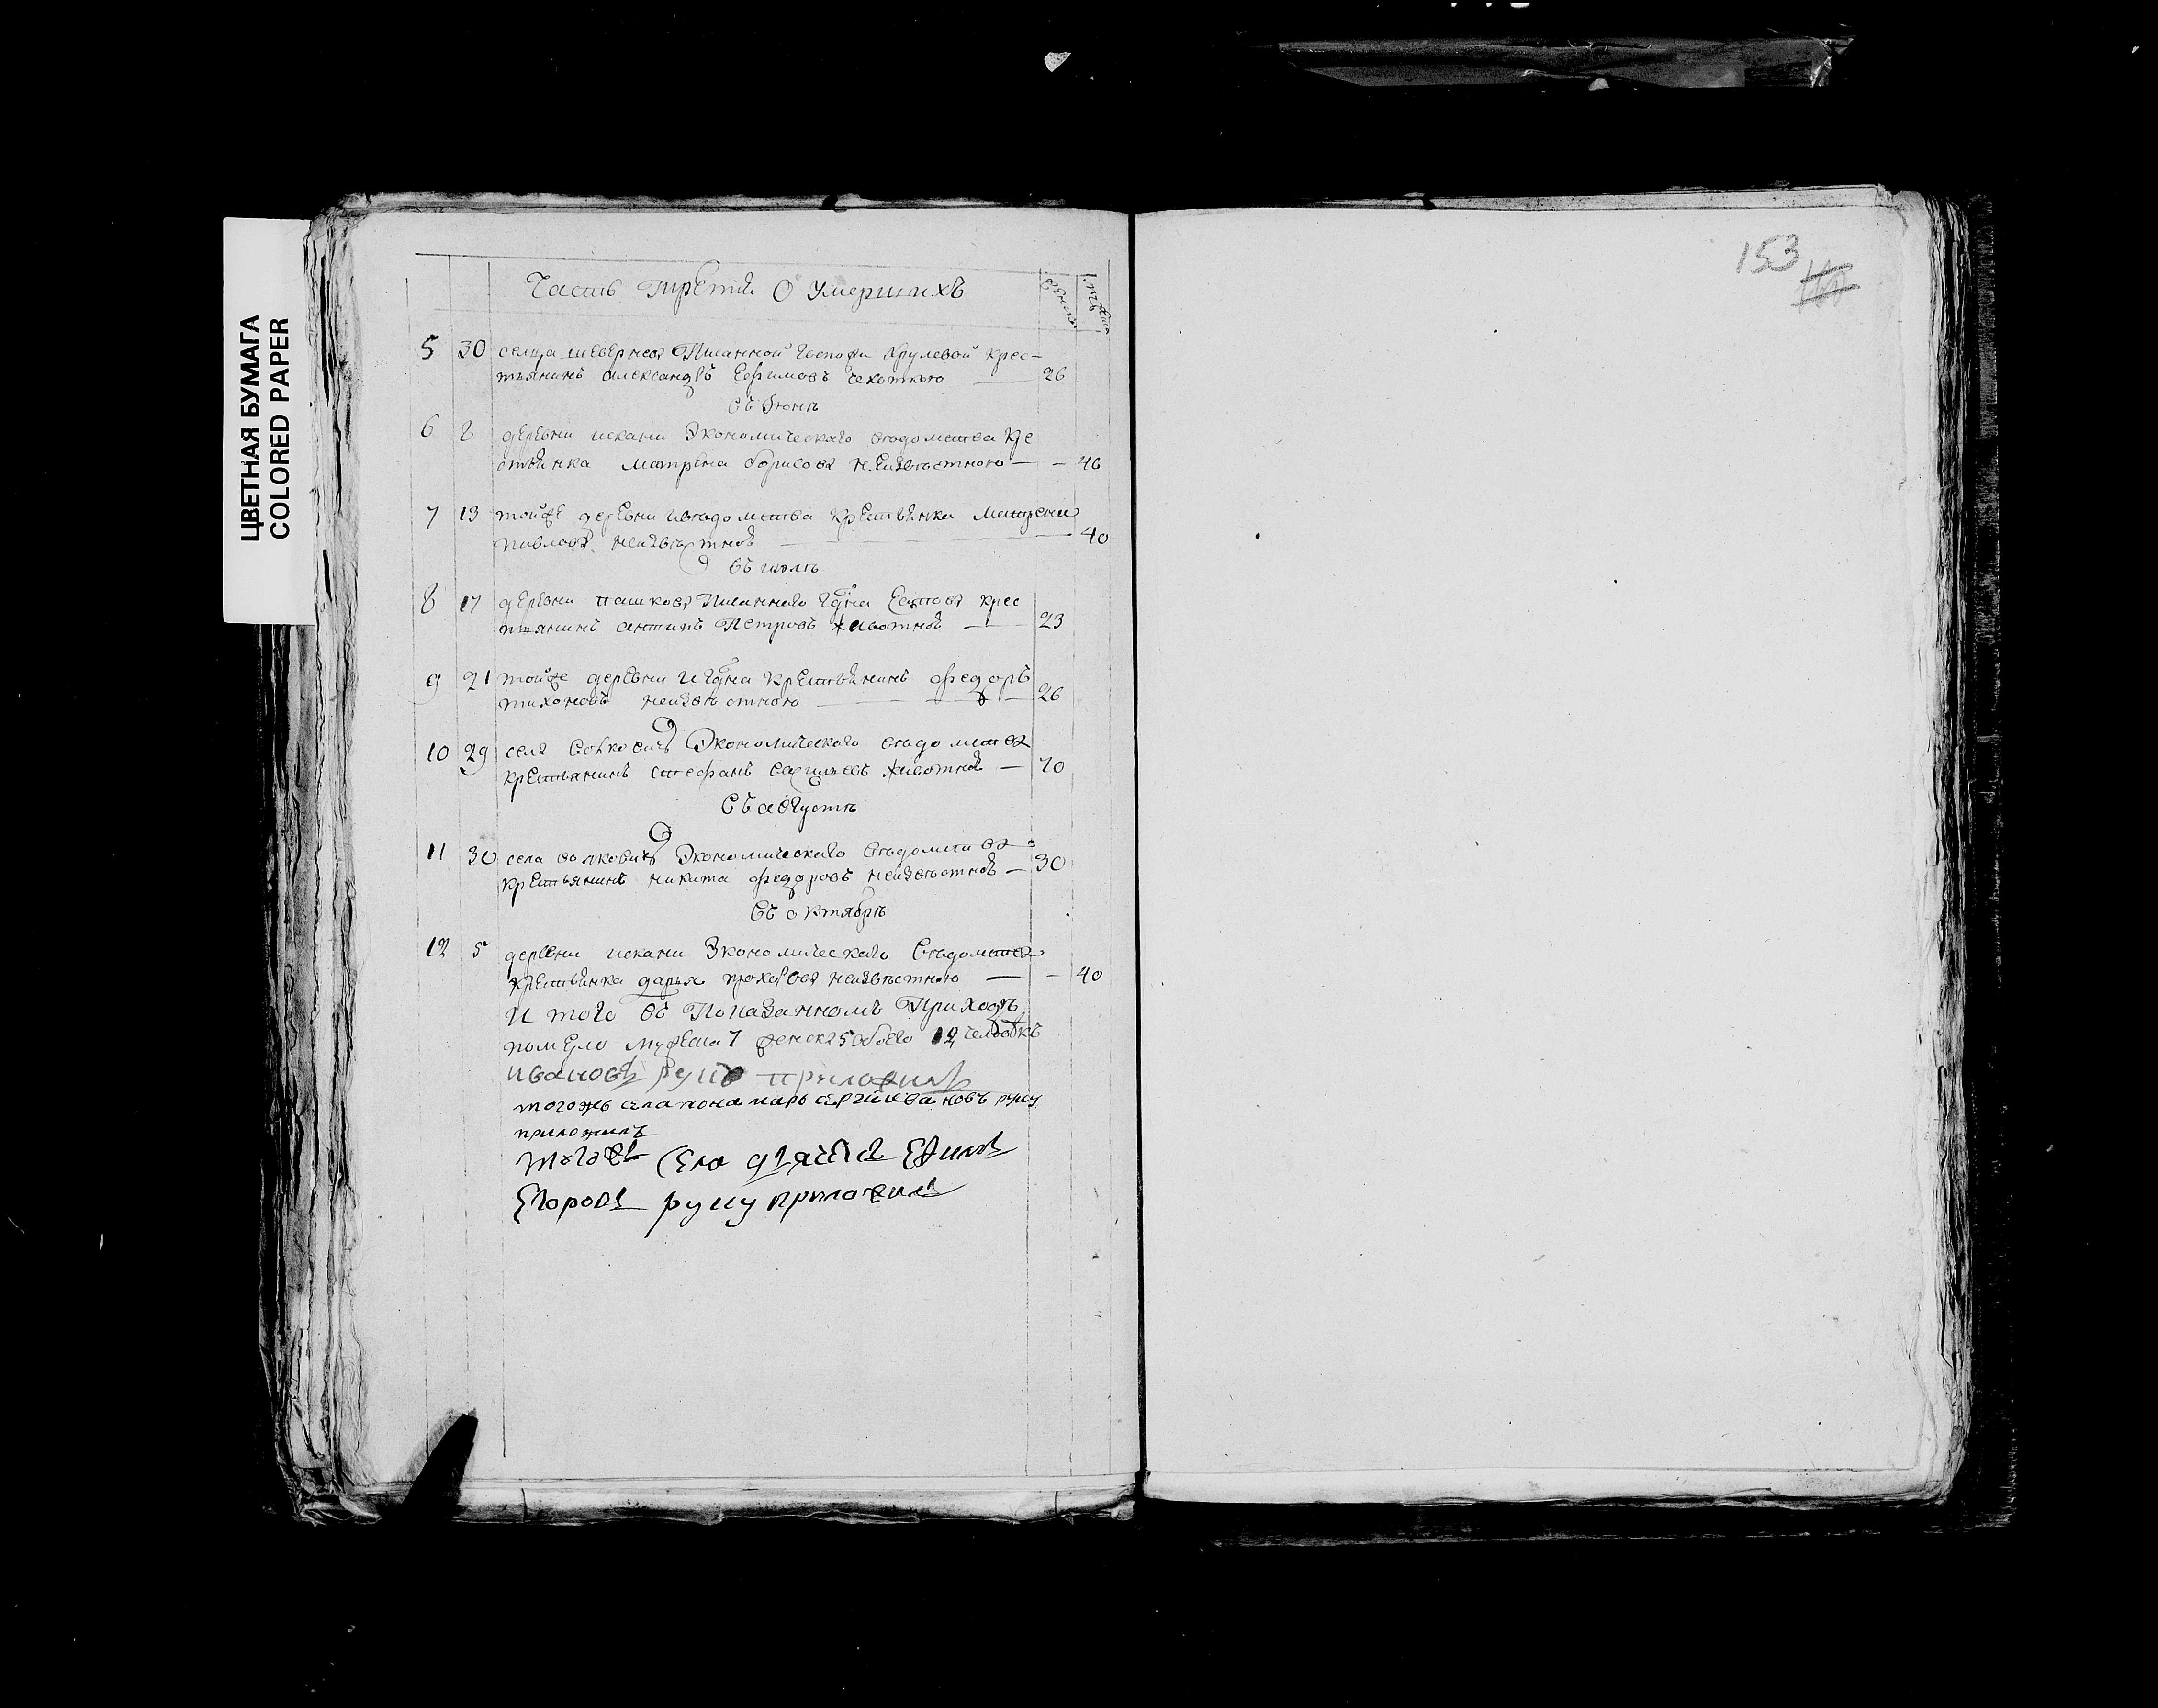 ЦВЕТНАЯ БУМАГА
COLORED PAPER
Часть третія О Умершихъ
5 30 селца Писанной Госпожи Крулевой крес-
тьянинъ александръ Ефимовъ чехоткою — 26
въ Іюнѣ
6 2 деревни искани Экономическаго вѣдомства кре
стьянка матрена борисова неизвѣстною — — 46
7 13 тойже деревни ивѣдомства крестьянка матрена
павлова неизвѣстною — 40
въ июлѣ
8 17 деревни пашкова Писаннаго Гдна крес
тьянинъ антипъ Петровъ животной — 23
9 21 тойже деревни и Гдна крестьянинъ федоръ
тихоновъ неизвѣстною — 26
10 29 села Экономическаго вѣдомства
крестьянинъ стефанъ животной — 70
въ августѣ
11 30 села волковичъ Экономическаго вѣдомства
крестьянинъ никита федоровъ неизвѣстной — 30
въ октябрѣ
12 5 деревни искани Экономическаго вѣдомства
крестьянка дарья прохорова неизвѣстною — — 40
И того въ Показанномъ Приходѣ
помѣрло мужеска 7 женска 5 обоего 12 человѣкъ
ивановъ руку приложилъ
тогожъ села понамарь сергий ивановъ руку
приложилъ
тогожъ села Ефимъ
Егоровъ руку приложилъ
153